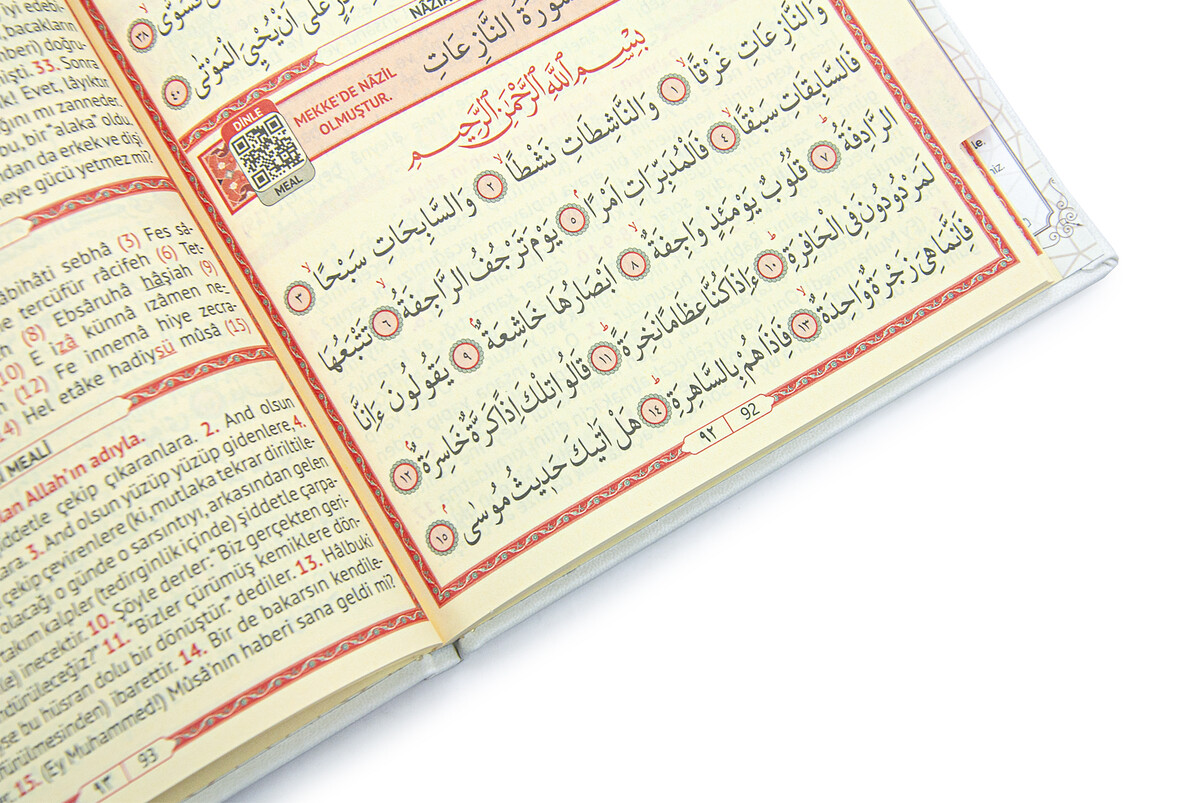 فَسَوّٰىۙ ﴿٣٨﴾
عَلٰٓى اَنْ يُحْيِيَ الْمَوْتٰى ﴿٤٠﴾
سُورَةُ النَّازِعَاتِ
MEKKE'DE NÂZİL
OLMUŞTUR.
DİNLE
MEAL
بِسْمِ اللّٰهِ الرَّحْمٰنِ الرَّحِيمِ
وَالنَّازِعَاتِ غَرْقًاۙ ﴿١﴾ وَالنَّاشِطَاتِ نَشْطًاۙ ﴿٢﴾ وَالسَّابِحَاتِ سَبْحًاۙ ﴿٣﴾
فَالسَّابِقَاتِ سَبْقًاۙ ﴿٤﴾ فَالْمُدَبِّرَاتِ اَمْرًاۢ ﴿٥﴾ يَوْمَ تَرْجُفُ الرَّاجِفَةُۙ ﴿٦﴾ تَتْبَعُهَا
الرَّادِفَةُۜ ﴿٧﴾ قُلُوبٌ يَوْمَئِذٍ وَاجِفَةٌۙ ﴿٨﴾ اَبْصَارُهَا خَاشِعَةٌۢ ﴿٩﴾ يَقُولُونَ ءَاِنَّا
لَمَرْدُودُونَ فِي الْحَافِرَةِۜ ﴿١٠﴾ ءَاِذَا كُنَّا عِظَامًا نَخِرَةًۜ ﴿١١﴾ قَالُوا تِلْكَ اِذًا كَرَّةٌ خَاسِرَةٌۢ ﴿١٢﴾
فَاِنَّمَا هِيَ زَجْرَةٌ وَاحِدَةٌۙ ﴿١٣﴾ فَاِذَا هُمْ بِالسَّاهِرَةِۜ ﴿١٤﴾ هَلْ اَتٰيكَ حَدِيثُ مُوسٰىۢ ﴿١٥﴾
٩٢ 92
iyi edebi-
bacakların
hberi) doğru-
işti. 33. Sonra
k! Evet, lâyıktır
ğını mı zanneder.
bu, bir "alaka" oldu.
ndan da erkek ve dişi
meye gücü yetmez mi?
âbihâti sebhâ (3) Fes sâ-
tercüfür râcifeh (6) Tet-
(8) Ebsâruhâ hâşiah (9)
(10) E izâ künnâ ızâmen ne-
(12) Fe innemâ hiye zecra-
14) Hel etâke hadiysü mûsâ (15)
MEALİ
Allah'ın adıyla.
şiddetle çekip çıkaranlara. 2. And olsun
3. And olsun yüzüp yüzüp gidenlere, 4.
çekip çevirenlere (ki, mutlaka tekrar diriltile-
olacağı o günde o sarsıntıyı, arkasından gelen
takım kalpler (tedirginlik içinde) şiddetle çarpa-
inecektir. 10. Şöyle derler: "Biz gerçekten geri-
ndürüleceğiz?" 11. "Bizler çürümüş kemiklere dön-
se bu hüsran dolu bir dönüştür." dediler. 13. Hâlbuki
ibarettir. 14. Bir de bakarsın kendile-
15. (Ey Muhammed!) Mûsâ'nın haberi sana geldi mi?
٩٣ 93